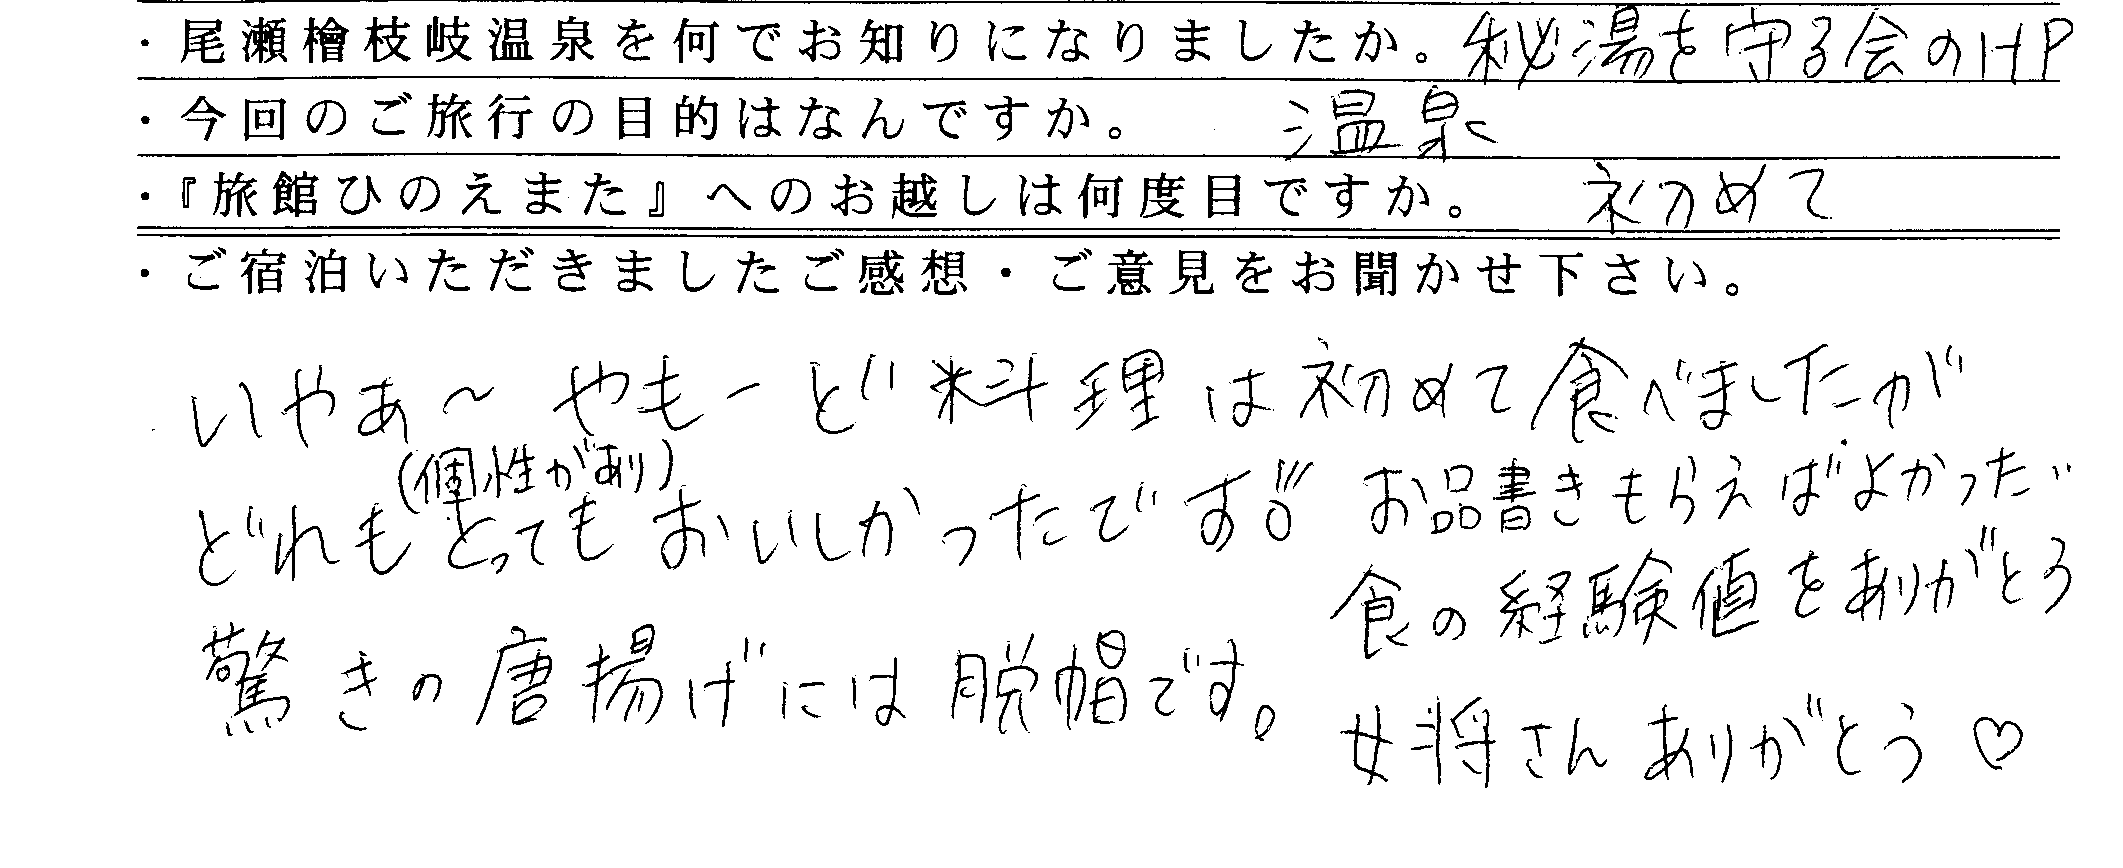 ・尾瀬檜枝岐温泉を何でお知りになりましたか。秘湯を守る会のHP
・今回のご旅行の目的はなんですか。 温泉
・『旅館ひのえまた』へのお越しは何度目ですか。 初めて
・ご宿泊いただきましたご感想・ご意見をお聞かせ下さい。
いやぁ〜 やもーど料理は初めて食べましたが
(個性があり)
どれもとってもおいしかったです!!
驚きの唐揚げには脱帽です。
お品書きもらえばよかった
食の経験値をありがとう
女将さんありがとう♡